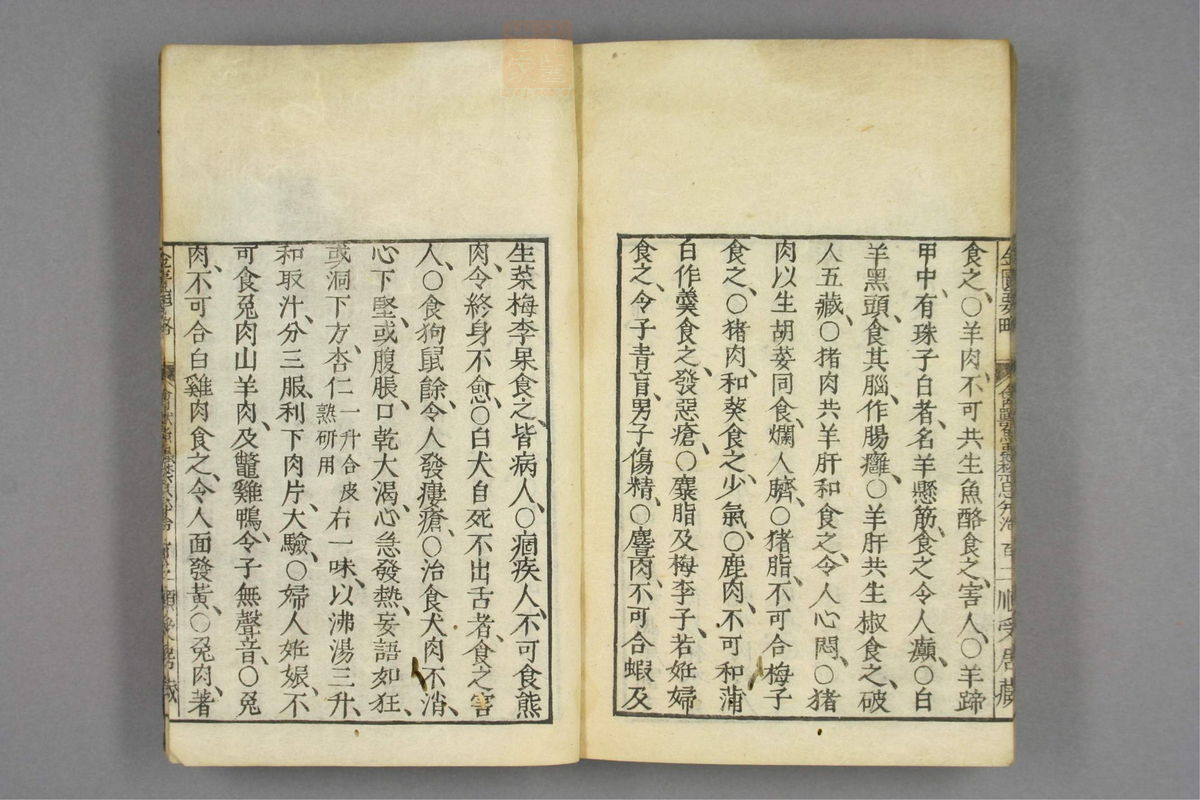 食之、○羊肉、不可共生魚酪食之、害人、○羊蹄
甲中、有珠子白者、名羊懸筋、食之令人癲、○白
羊黑頭、食其腦、作腸癰、○羊肝共生椒食之、破
人五藏、○猪肉共羊肝和食之、令人心悶、○猪
肉以生胡荽同食、爛人臍、○猪脂、不可合梅子
食之、○猪肉、和葵食之、少氣、○鹿肉、不可和蒲
白作羹食之、發惡瘡、○麋脂及梅李子、若姙婦
食之、令子青盲、男子傷精、○麞肉不可合蝦及
生菜梅李果食之、皆病人、○痼疾人、不可食熊
肉、令終身不愈、○白犬自死不出舌者、食之害
人、○食狗鼠餘、令人發瘻瘡、○治食犬肉不消、
心下堅、或腹脹、口乾大渴、心急發熱、妄語如狂、
或洞下方、杏仁一升合皮熟研用右一味、以沸湯三升、
和取汁、分三服、利下肉片、大驗、○婦人姙娠、不
可食兔肉山羊肉、及鼈雞鴨、令子無聲音、○兔
肉、不可合白雞肉食之、令人面發黃、○兔肉、著